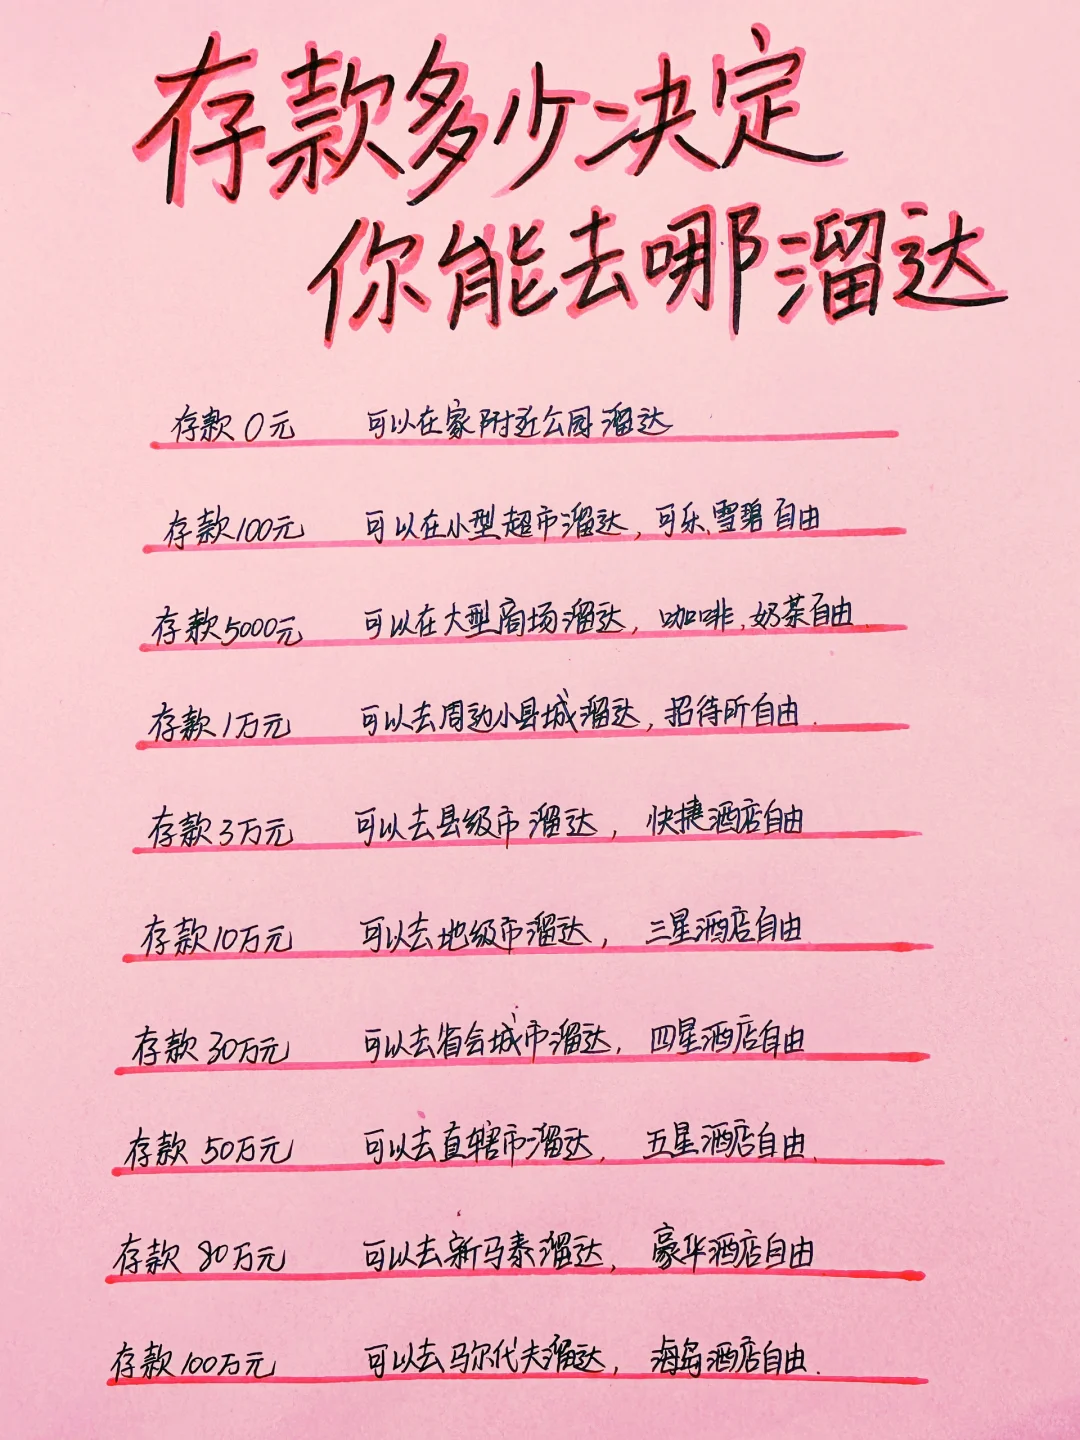 存款多少决定
你能去哪溜达
存款0元 可以在家附近公园溜达
存款100元 可以在小型超市溜达，可乐、雪碧自由
存款5000元 可以在大型商场溜达，咖啡、奶茶自由.
存款1万元 可以去周边小县城溜达，招待所自由.
存款3万元 可以去县级市溜达，快捷酒店自由
存款10万元 可以去地级市溜达，三星酒店自由
存款30万元 可以去省会城市溜达，四星酒店自由
存款50万元 可以去直辖市溜达，五星酒店自由.
存款80万元 可以去新马泰溜达，豪华酒店自由
存款100万元 可以去马尔代夫溜达，海岛酒店自由.